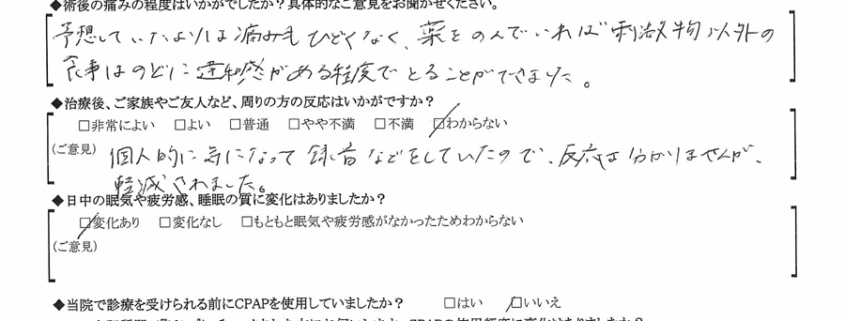 ◆術後の痛みの程度はいかがでしたか?具体的なご意見をお聞かせください。
予想していたよりは痛みもひどくなく、薬をのんでいれば刺激物以外の
食事はのどに違和感がある程度でとることができました。
◆治療後、ご家族やご友人など、周りの方の反応はいかがですか?
□非常によい □よい □普通 □やや不満 □不満 □わからない
(ご意見) 個人的に気になって録音などをしていたので、反応は分かりませんが、
軽減されました。
◆日中の眠気や疲労感、睡眠の質に変化はありましたか?
□変化あり □変化なし □もともと眠気や疲労感がなかったためわからない
(ご意見)
◆当院で診療を受けられる前にCPAPを使用していましたか? □はい □いいえ